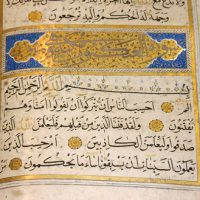 وَجْهَهُ لَهُ الْحُكْمُ وَإِلَيْهِ تُرْجَعُونَ
بِسْمِ اللَّهِ الرَّحْمَنِ الرَّحِيمِ
الم أَحَسِبَ النَّاسُ أَنْ يُتْرَكُوا أَنْ يَقُولُوا آمَنَّا وَهُمْ لَا
يُفْتَنُونَ وَلَقَدْ فَتَنَّا الَّذِينَ مِنْ قَبْلِهِمْ فَلَيَعْلَمَنَّ اللَّهُ الَّذِينَ
صَدَقُوا وَلَيَعْلَمَنَّ الْكَاذِبِينَ أَمْ حَسِبَ الَّذِينَ
يَعْمَلُونَ السَّيِّئَاتِ أَنْ يَسْبِقُونَا سَاءَ مَا يَحْكُمُونَ